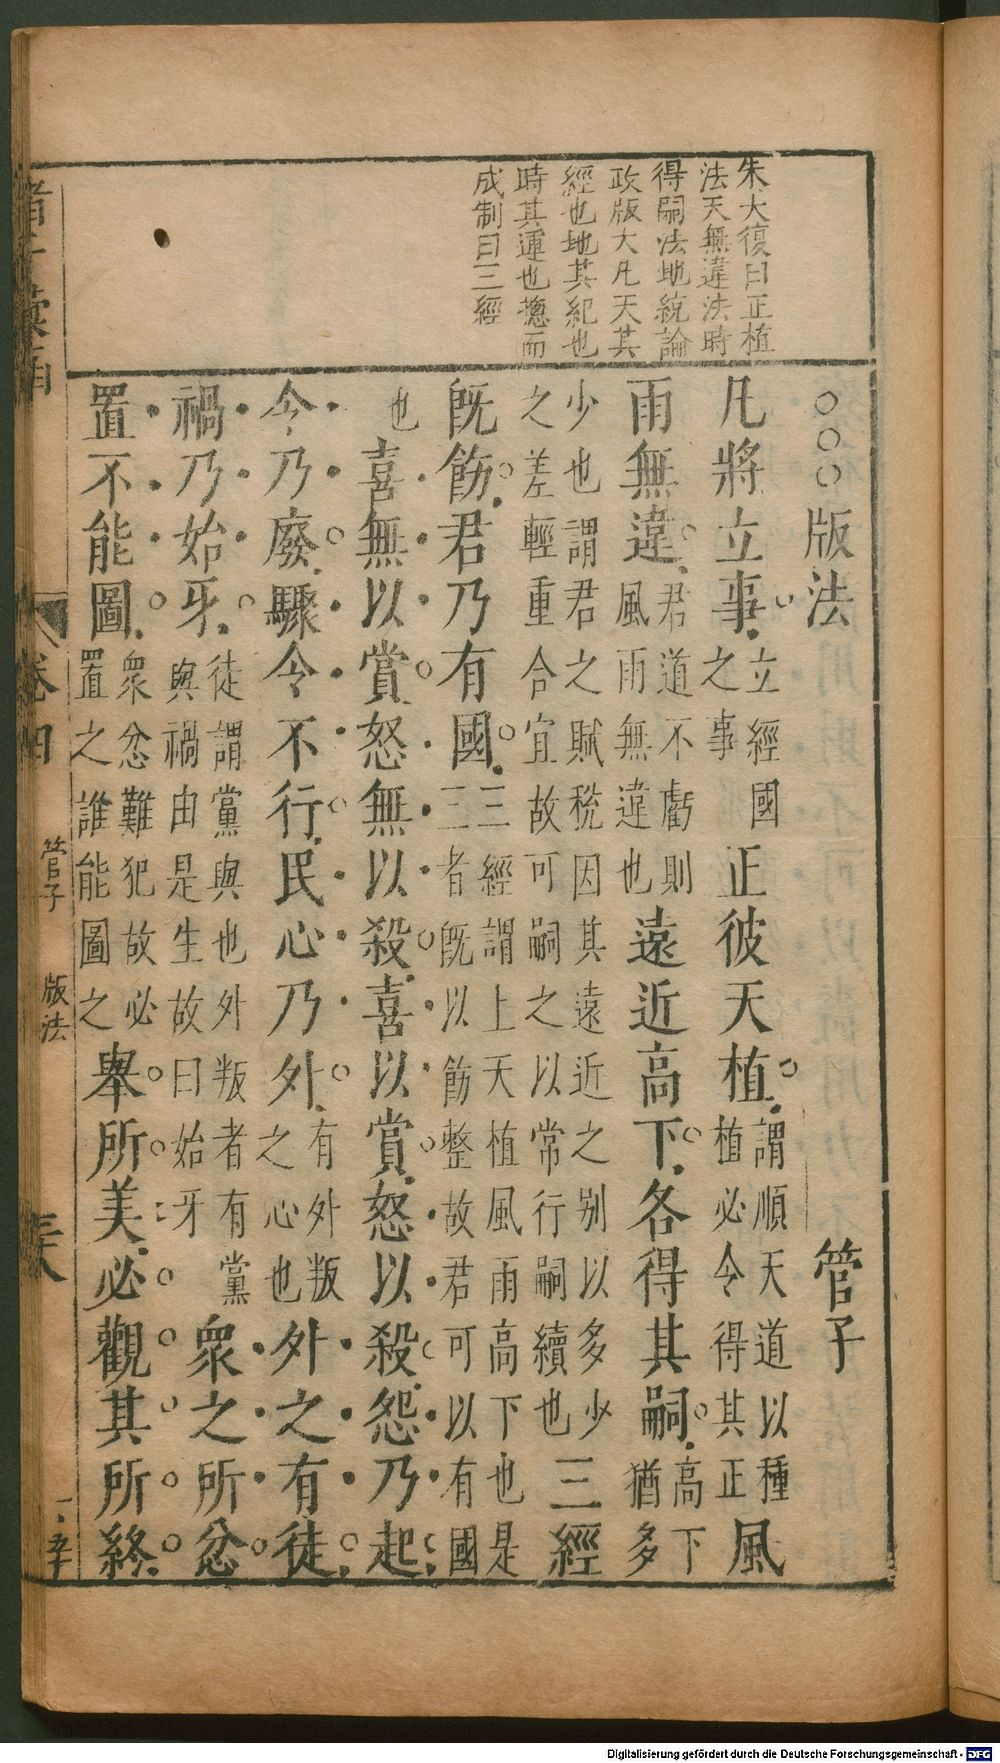 朱大復曰正植
法天無違法時
得嗣法地統論
政版大凡天其
經也地其紀也
時其運也摠而
成制曰三經
○○○版法 管子
凡將立事立經國之事正彼天植謂順天道以種植必令得其正風
雨無違君道不虧則風雨無違也遠近高下各得其嗣高下猶多
少也謂君之賦稅因其遠近之别以多少之差輕重合宜故可嗣之以常行嗣續也三經
既飭君乃有國三經謂上天植風雨高下也是三者既以飭整故君可以有國
也喜無以賞怒無以殺喜以賞怒以殺怨乃起
令乃廢驟令不行民心乃外有外叛之心也外之有徒
禍乃始牙徒謂黨與也外叛者有黨與禍由是生故曰始牙眾之所忿
置不能圖眾忿難犯故必置之誰能圖之舉所美必觀其所終
卷四
管子
版法
Digitalisierung gefördert durch die Deutsche Forschungsgemeinschaft - DFG